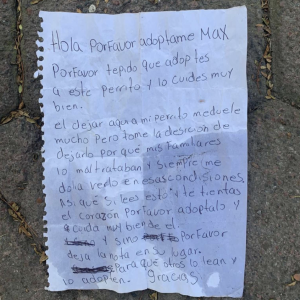 Hola Porfavor adoptame MAX
Porfavor tepido que adoptes
a este perrito y lo cuides muy
bien.
el dejar aqua mi perrito meduele
mucho Pero tome la desicion de
dejarlo Por que mis familiares
lo maltrataban y siempre me
dolia verlo en esas condiciones.
Asi que si lees esto y te tientas
el corazon Porfavor adoptalo y
cuida muy bien de el
y sino Porfavor
deja la nota en su lugar.
Para que otros lo lean y
lo adopten. Gracias